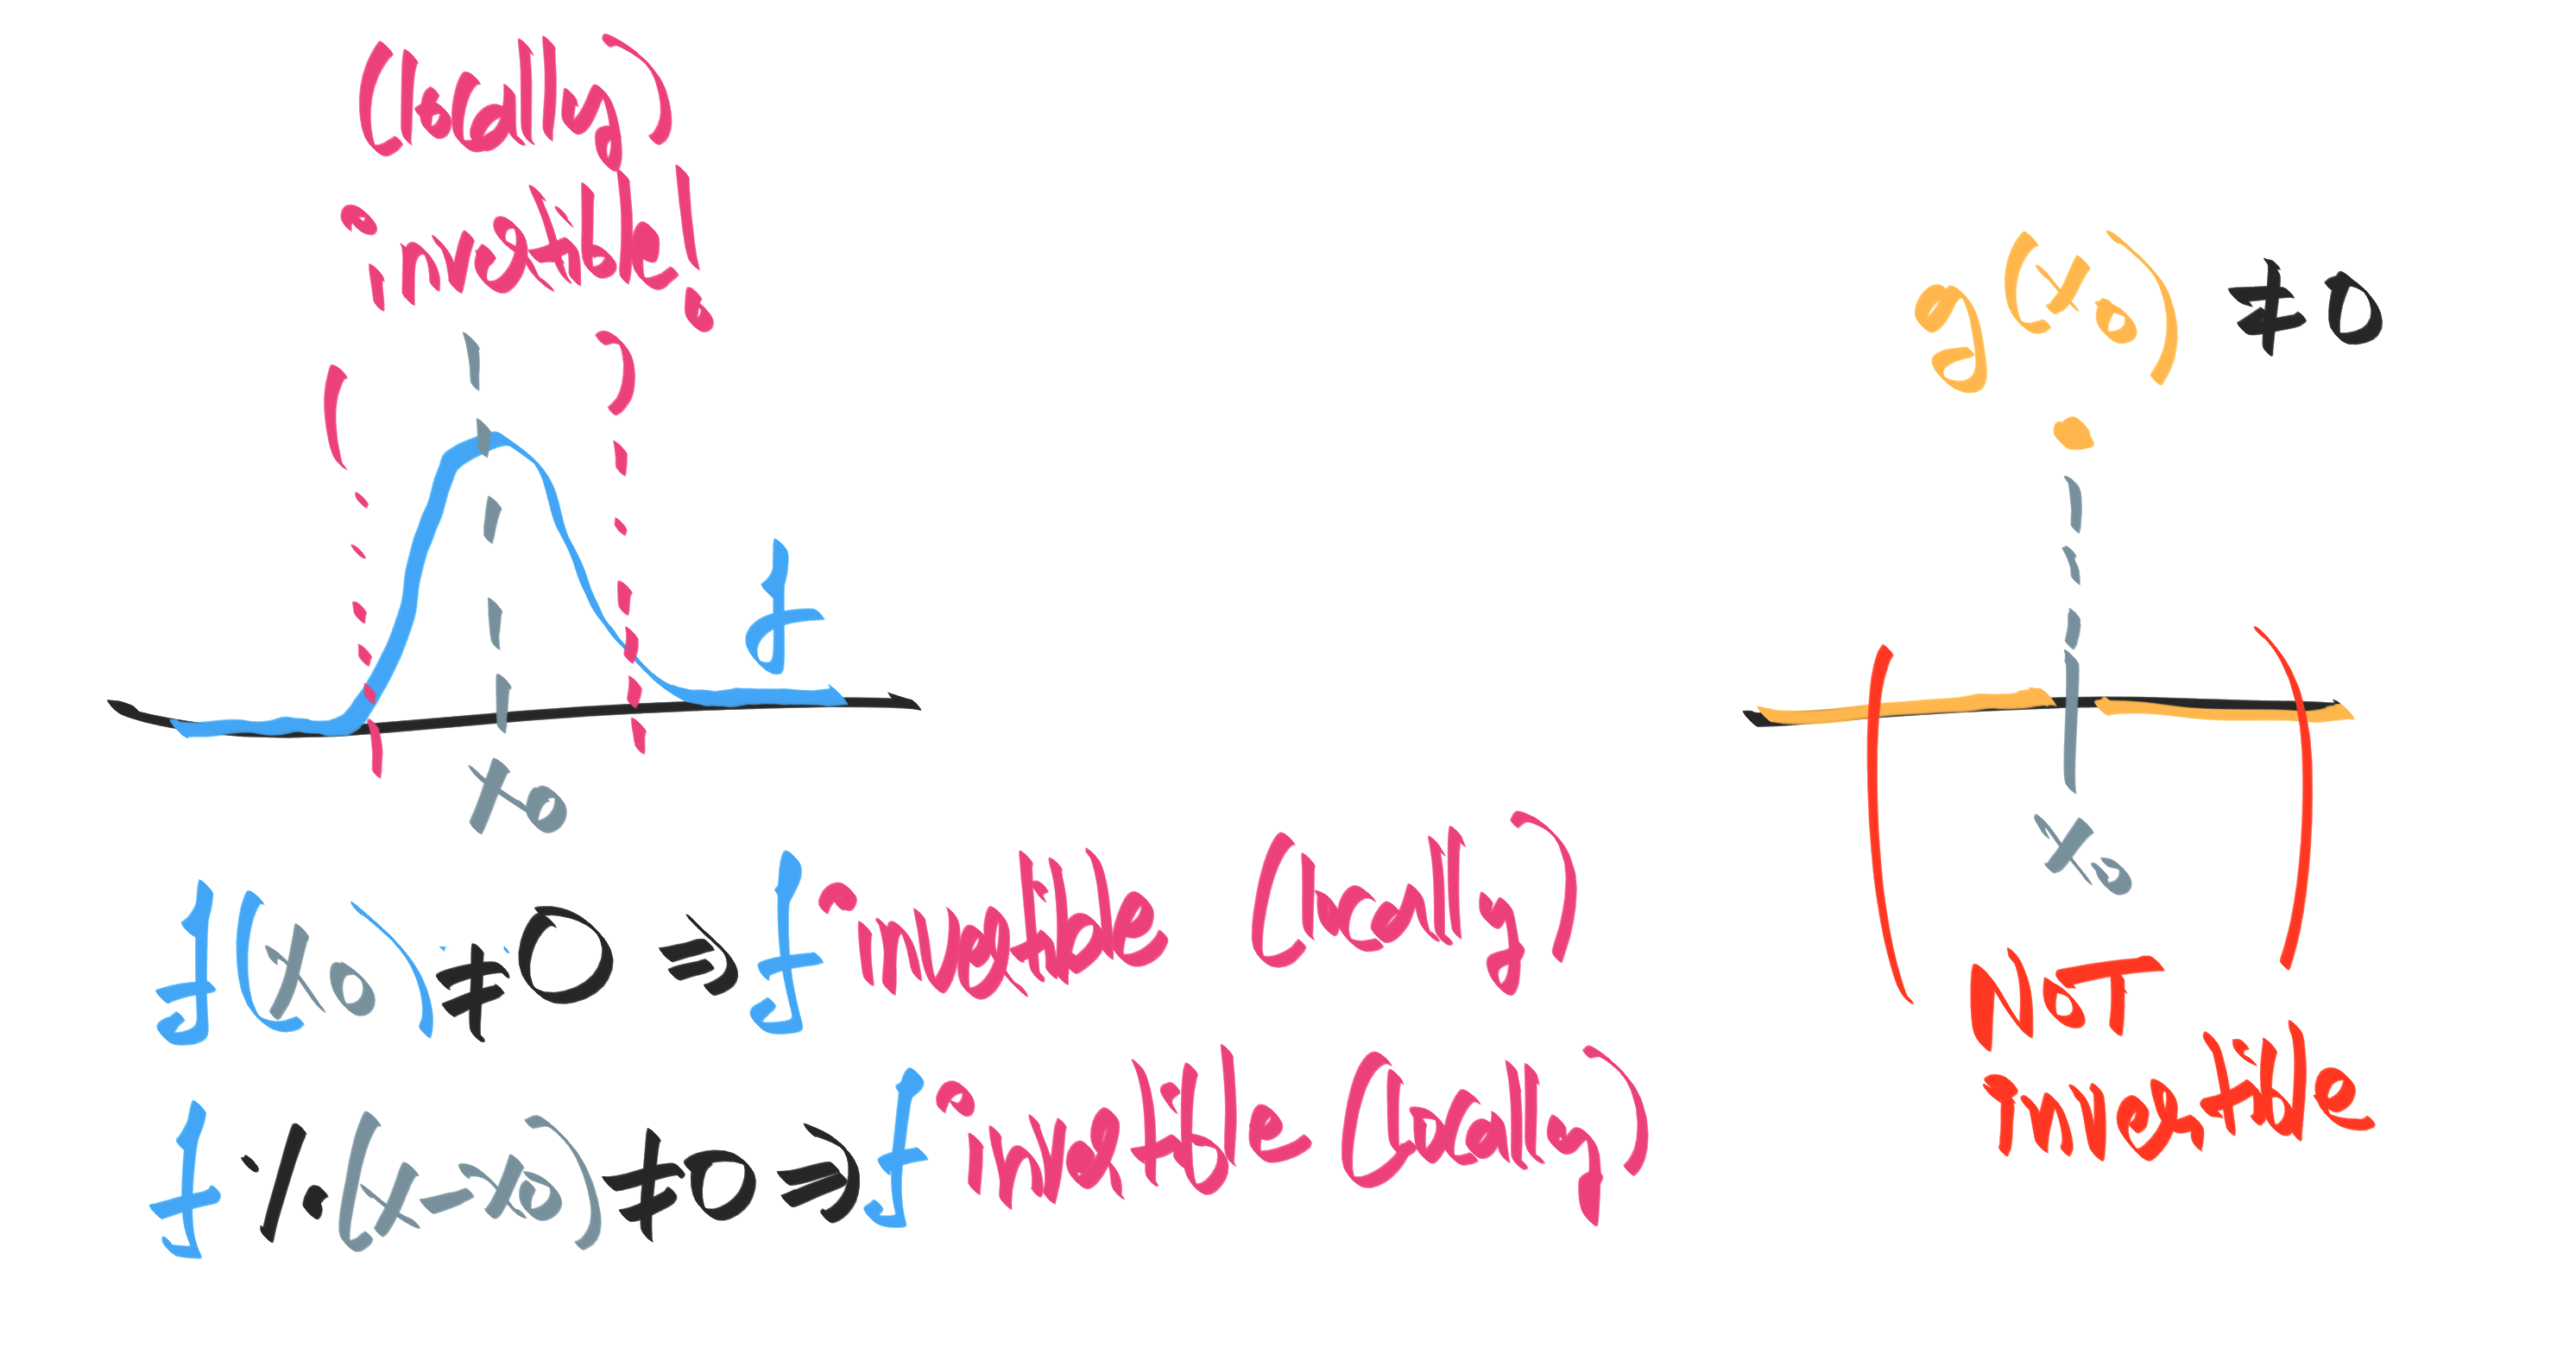 (locally)
invertible!
( )
f
x₀
f(x₀) ≠ 0 ⇒ f invertible (locally)
f % (x-x₀) ≠ 0 ⇒ f invertible (locally)
g(x₀) ≠ 0
( )
x₀
NOT
invertible